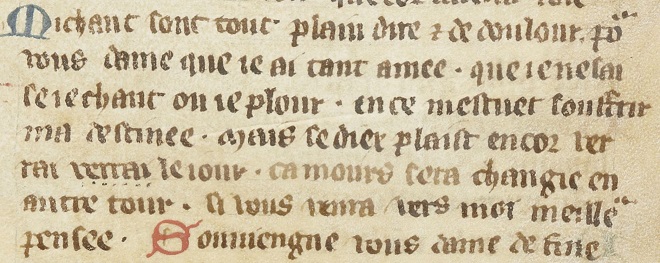 Mi chant sont tout plain dire ⁊ de doulour. po
vous dame que ie ai tant amee · que ie ne sai
se ie chant ou ie plour · en ce mestuet souffrir
ma destinee · Mais se diex plaist encor ver
rai verrai le iour · camours sera changie en
autre tour · si vous venra vers moi meille
pensee · Souviengne vous dame de fine